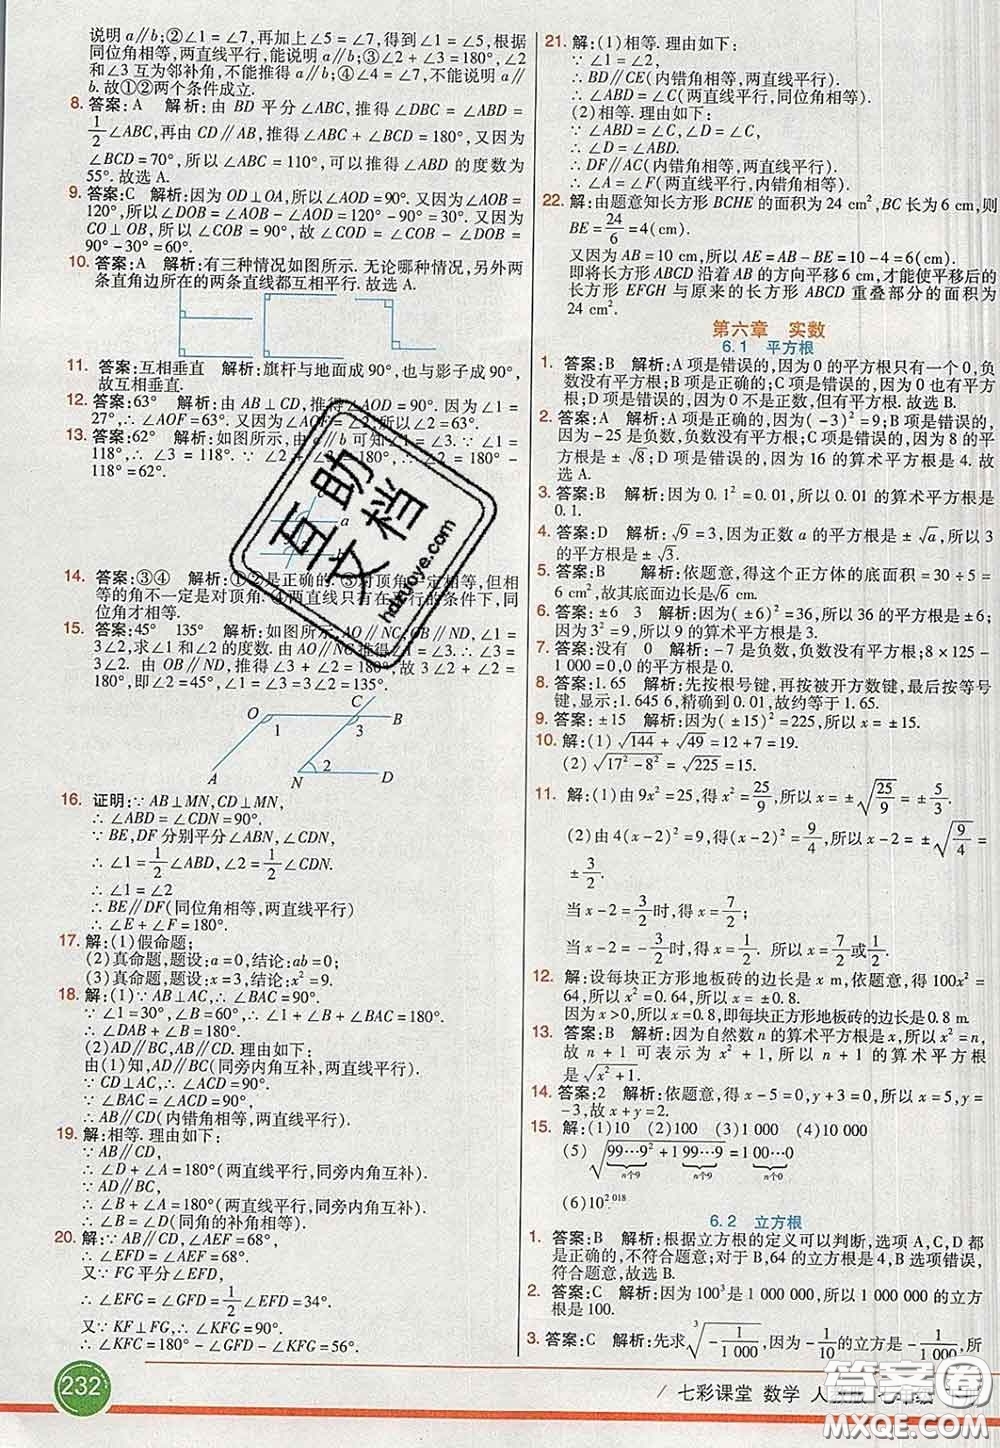 说明 a∥b;②∠1=∠7,再加上∠5=∠7,得到∠1=∠5,根据
同位角相等,两直线平行,能说明 a∥b;③∠2+∠3=180°,∠2
和∠3 互为邻补角,不能推得 a∥b;④∠4=∠7,不能说明
a∥b.故①②两个条件成立.
8. 答案:A 解析:由 BD 平分∠ABC,推得∠DBC=∠ABD=
1/2∠ABC,再由 CD∥AB,推得∠ABC+∠BCD=180°,又因为
∠BCD=70°,所以∠ABC=110°,所以可推得∠ABD 的度数为
55°.故选 A.
9. 答案:C 解析:因为 OD⊥OA,所以∠AOD=90°.又因为∠AOB=
120°,所以∠DOB=∠AOB-∠AOD=120°-90°=30°.又因为
CO⊥OB,所以∠COB=90°,所以∠COD=∠COB-∠DOB=
90°-30°=60°.
10. 答案:A 解析:有三种情况如图所示.无论哪种情况,另外两
条直角边所在的两条直线都互相平行.故选 A.
11. 答案:互相垂直 解析:旗杆与地面成 90°,也与影子成 90°,
故互相垂直.
12. 答案:63° 解析:由 AB⊥CD,推得∠AOC=90°,又因为∠1=
27°,∴∠AOF=63°.又因为∠AOF=∠2,所以∠2=63°.
13. 答案:62° 解析:如图所示,由 a∥b 可知∠1=∠3,∠1=
118°,∴∠3=118°.∵∠2+∠3=180°,∴∠2=180°-
118°=62°.
a
b
14. 答案:③④ 解析:①②是正确的.③对顶角一定相等,但相
等的角不一定是对顶角.④两直线只有在平行的条件下,同
位角才相等.
15. 答案:45° 135° 解析:如图所示,AO∥NC,OB∥ND,∠1=
3∠2,求∠1 和∠2 的度数.由 AO∥NC 推得∠1=∠3,∴∠3=
3∠2.由 OB∥ND,推得∠3+∠2=180°,故 3∠2+∠2=
180°,即∠2=45°,∠1=3∠2=135°.
O 1 C B
3
A N 2 D
16. 证明:∵AB⊥MN,CD⊥MN,
∴∠ABD=∠CDN=90°.
∵BE,DF 分别平分∠ABN,∠CDN,
∴∠1=1/2∠ABD,∠2=1/2∠CDN.
∴∠1=∠2
∴BE∥DF(同位角相等,两直线平行)
∴∠E+∠F=180°.
17. 解:(1)假命题;
(2)真命题,题设:a=0,结论:ab=0;
(3)真命题,题设:x=3,结论:x²=9.
18. 解:(1)∵AB⊥AC,∴∠BAC=90°.
∵∠1=30°,∠B=60°,∴∠1+∠B+∠BAC=180°,
∴∠DAB+∠B=180°.
(2)AD∥BC,AB∥CD.理由如下:
由(1)知,AD∥BC(同旁内角互补,两直线平行).
∵CD⊥AC,∴∠ACD=90°.
∵∠BAC=∠ACD=90°,
∴AB∥CD(内错角相等,两直线平行).
19. 解:相等.理由如下:
∵AB∥CD,
∴∠D+∠A=180°(两直线平行,同旁内角互补).
∵AD∥BC,
∴∠B+∠A=180°(两直线平行,同旁内角互补),
∴∠B=∠D(同角的补角相等).
20. 解:∵AB∥CD,∠AEF=68°,
∴∠EFD=∠AEF=68°.
又∵FG 平分∠EFD,
∴∠EFG=∠GFD=1/2∠EFD=34°.
又∵KF⊥FG,∴∠KFG=90°,
∴∠KFC=180°-∠GFD-∠KFG=56°.
21. 解:(1)相等.理由如下:
∵∠1=∠2,
∴BD∥CE(内错角相等,两直线平行).
∴∠ABD=∠C(两直线平行,同位角相等).
(2)相等.理由如下:
∵∠ABD=∠C,∠C=∠D,
∴∠D=∠ABD.
∴DF∥AC(内错角相等,两直线平行).
∴∠A=∠F(两直线平行,内错角相等).
22. 解:由题意知长方形 BCHE 的面积为 24 cm²,BC 长为 6 cm,则
BE=24/6=4(cm).
又因为 AB=10 cm,所以 AE=AB-BE=10-4=6(cm).
即将长方形 ABCD 沿着 AB 的方向平移 6 cm,才能使平移后的
长方形 EFGH 与原来的长方形 ABCD 重叠部分的面积为
24 cm².
第六章 实数
6.1 平方根
1. 答案:B 解析:A 项是错误的,因为 0 的平方根只有一个 0,负
数没有平方根;B 项是正确的;C 项是错误的,因为负数没有平
方根;D 项是错误的,因为 0 不是正数,但有平方根.故选 B.
2. 答案:A 解析:A 项是正确的,因为(-3)²=9;B 项是错误的,
因为-25 是负数,负数没有平方根;C 项是错误的,因为 8 的平
方根是±√8;D 项是错误的,因为 16 的算术平方根是 4.故
选 A.
3. 答案:B 解析:因为 0.1²=0.01,所以 0.01 的算术平方根是
0.1.
4. 答案:D 解析:√9=3,因为正数 a 的平方根是±√a,所以√9
的平方根是±√3.
5. 答案:B 解析:依题意,得这个正方体的底面积是 30÷5=
6(m²),故其底面边长是√6 m.
6. 答案:±6 3 解析:因为(±6)²=36,所以 36 的平方根是
±6.因为 3²=9,所以 9 的算术平方根是 3.
7. 答案:没有 0 解析:-7 是负数,负数没有平方根;8×125-
1 000=0,0 的平方根是 0.
8. 答案:1.65 解析:先按根号键,再按被开方数键,最后按等号
键,显示:1.645 6,精确到 0.01,故约等于 1.65.
9. 答案:±15 解析:因为(±15)²=225,所以 x=±15.
10. 解:(1)√144+√49=12+7=19.
(2)√(17²-8²)=√225=15.
11. 解:(1)由 9x²=25,得 x²=25/9,所以 x=±√(25/9)=±5/3.
(2)由 4(x-2)²=9,得(x-2)²=9/4,所以 x-2=±√(9/4)=
±3/2.
当 x-2=3/2时,得 x=7/2;
当 x-2=-3/2时,得 x=1/2. 所以 x=7/2或1/2.
12. 解:设每块正方形地板砖的边长是 x m,依题意,得 100x²=
64,所以 x²=0.64,所以 x=±0.8.
因为 x>0,所以 x=0.8,即每块正方形地板砖的边长是 0.8 m.
13. 答案:B 解析:因为自然数 n 的算术平方根是 x,所以 x²=n,
故 n+1 可表示为 x²+1,所以 n+1 的算术平方根
是√(x²+1).
14. 答案:2 解析:依题意,得 x-5=0,y+3=0,所以 x=5,y=
-3,故 x+y=2.
15. 解:(1)10 (2)100 (3)1 000 (4)10 000
(5)√(99⋯9²+1 99⋯9)=1 00⋯0
n个9 n个9 n个0
(6)10^2 018
6.2 立方根
1. 答案:B 解析:根据立方根的定义可以判断,选项 A,C,D 都
是正确的,不符合题意;对于 B,64 的立方根是 4,B 选项错误,
符合题意.故选 B.
2. 答案:C 解析:因为 100³是 1 000 000,所以 1 000 000 的立方
根是 100.
3. 答案:C 解析:先求³√(-1/1 000),因为-1/10的立方是-1/1 000,所
232
七彩课堂 数学 人教版
互助文档
hdzuoye.com
答案圈
MXQE.COM